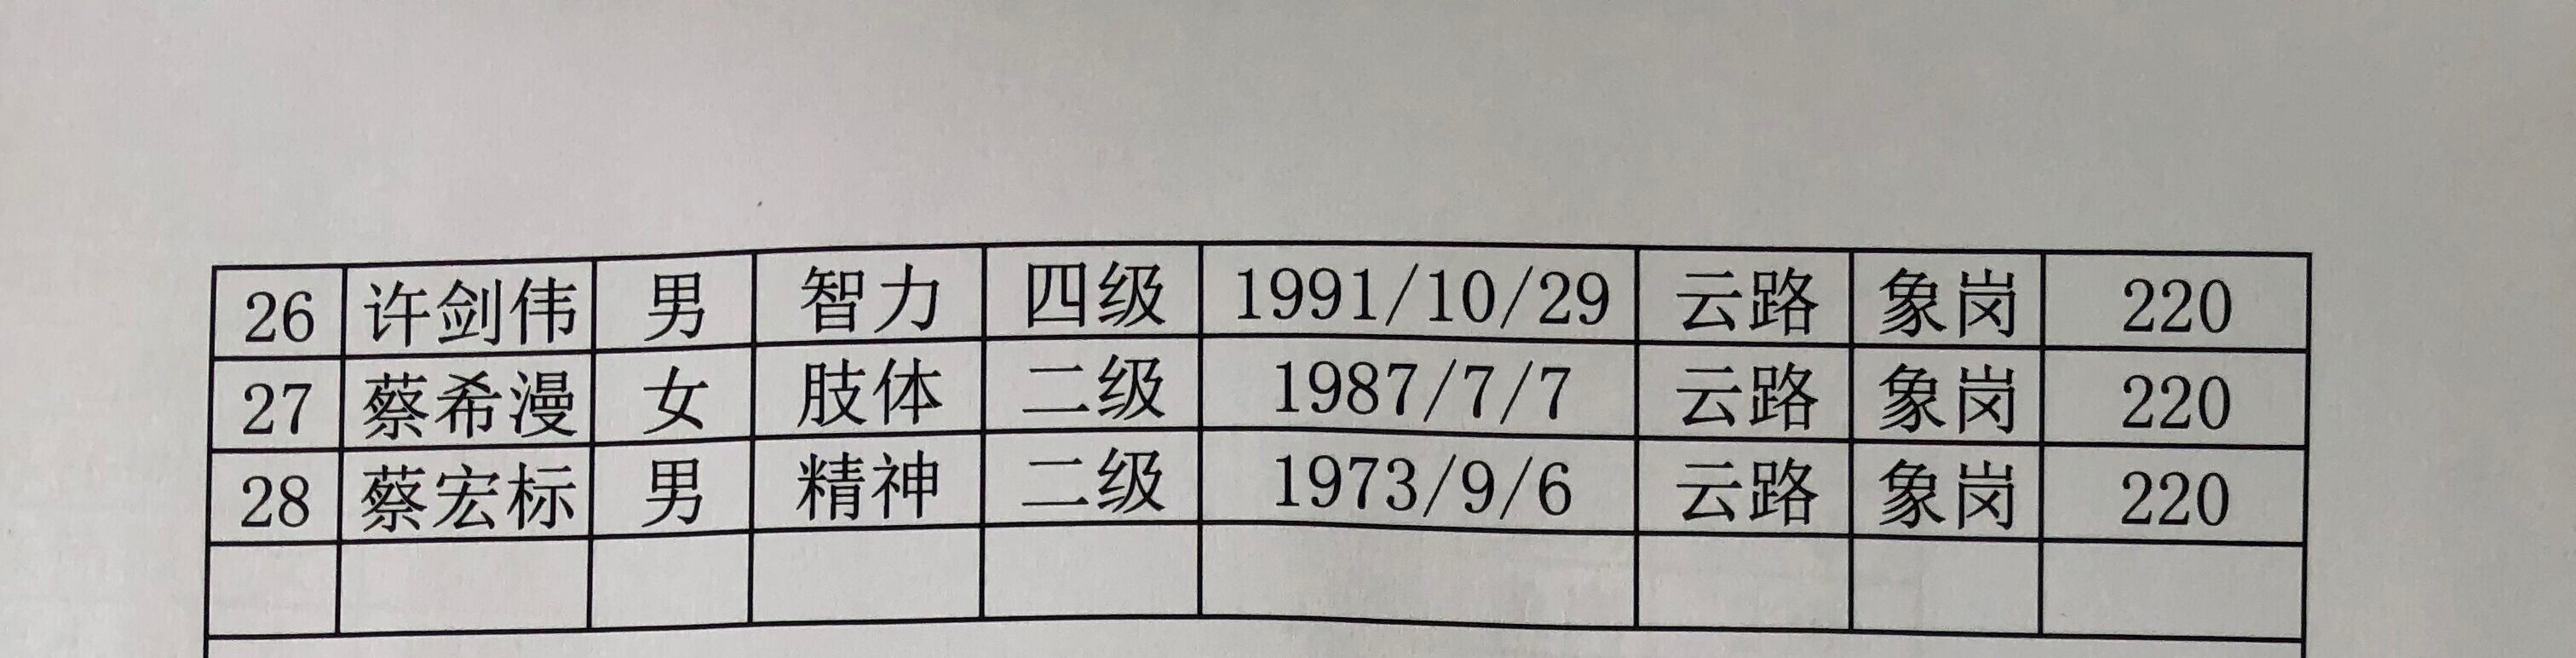 26 许剑伟 男 智力 四级 1991/10/29 云路 象岗 220
27 蔡希漫 女 肢体 二级 1987/7/7 云路 象岗 220
28 蔡宏标 男 精神 二级 1973/9/6 云路 象岗 220